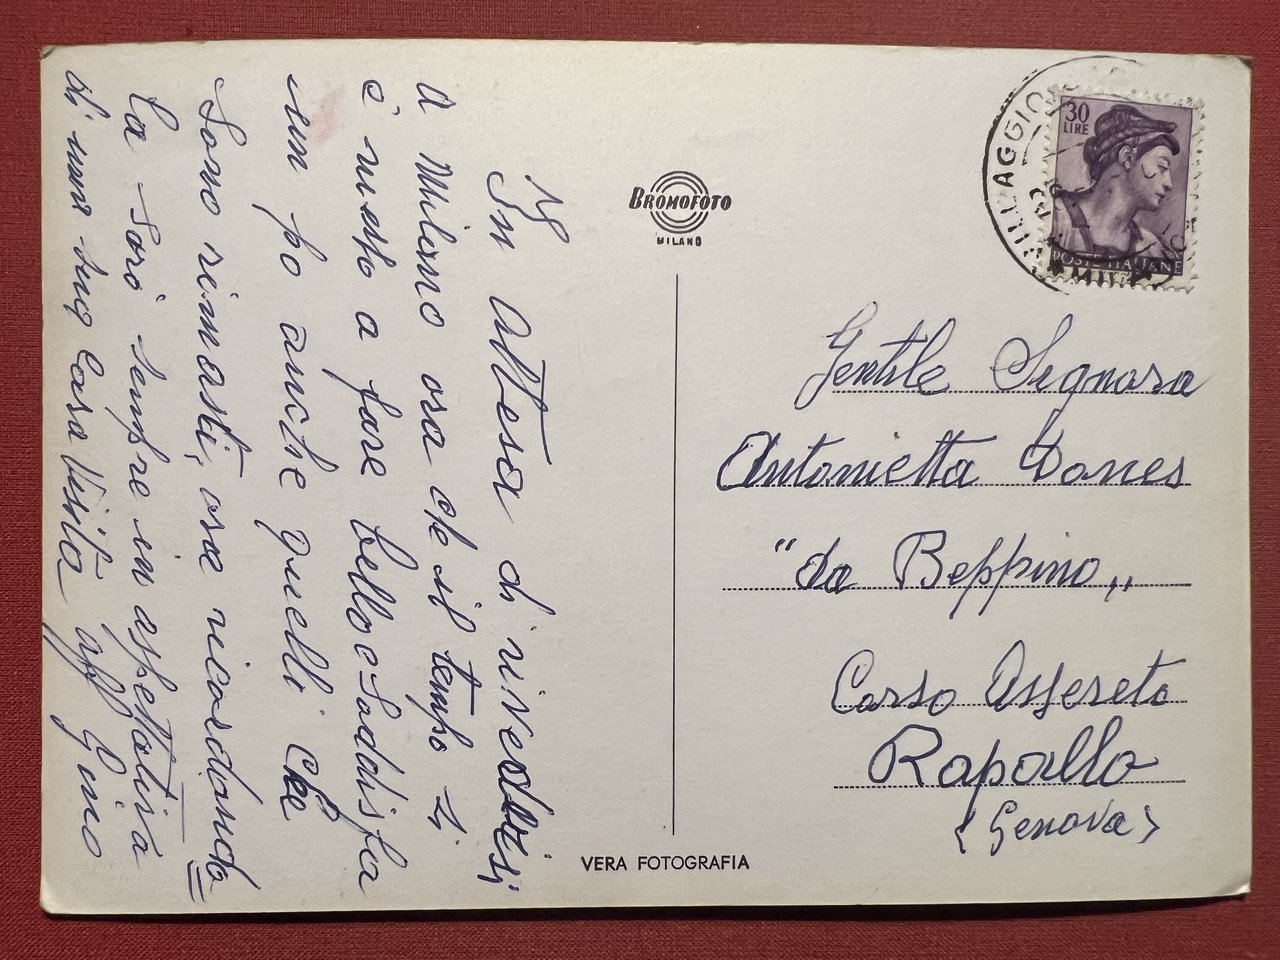 In Attesa di rivederci
a Milano ora che il tempo si
è messo a fare bello e Soddisfa
un po anche quelli che
Sono rimasti, ora ricordando
la Sarò sempre in aspettativa
di una sua Cara Visita aff Gino
BROMOFOTO
MILANO
VERA FOTOGRAFIA
VILLAGGIO
30
LIRE
POSTE ITALIANE
Gentile Signora
Antonietta Dones
"da Beppino„
Corso Assereto
Rapallo
(Genova)